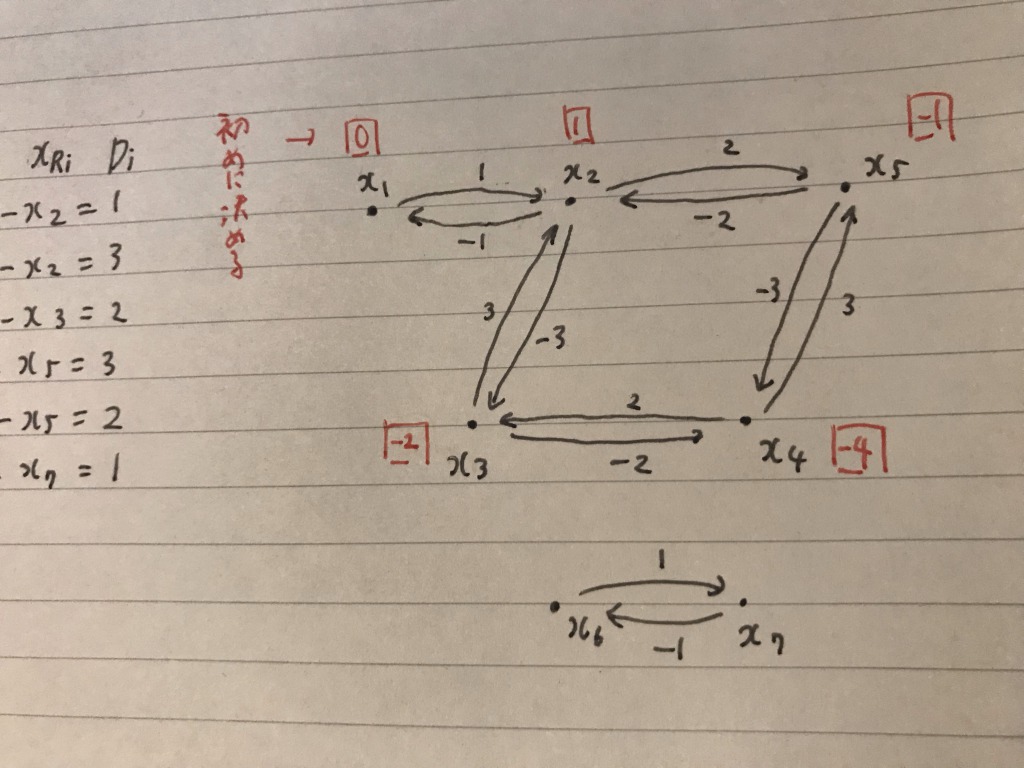 xRi Di
-x2 = 1
-x2 = 3
-x3 = 2
x5 = 3
-x5 = 2
x7 = 1
初めに決める
→ 0
1
-1
x1
1
-1
x2
2
-2
x5
3
-3
-3
3
-2
x3
2
-2
x4
-4
1
x6
-1
x7